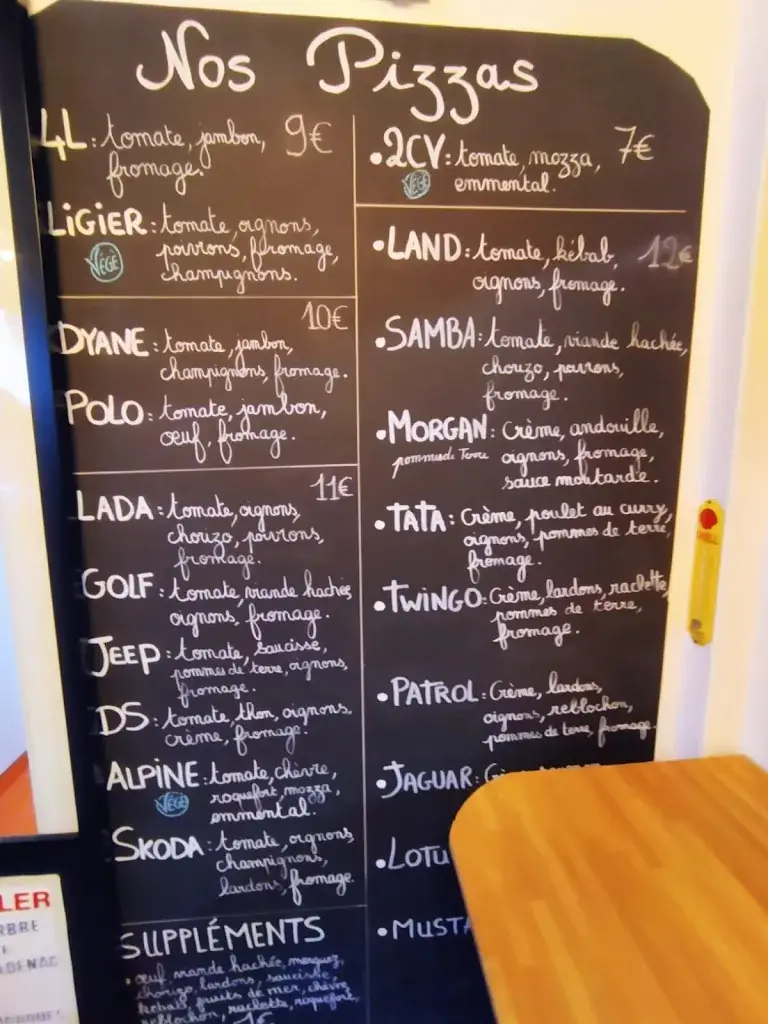 Nos Pizzas
4L: tomate, jambon, 9€
fromage.
LIGIER: tomate, oignons,
VÉGÉ poivrons, fromage,
champignons.
10€
DYANE: tomate, jambon,
champignons, fromage.
POLO: tomate, jambon,
œuf, fromage.
11€
LADA: tomate, oignons,
chorizo, poivrons,
fromage.
GOLF: tomate, viande hachée,
oignons, fromage.
JEEP: tomate, saucisse,
pommes de terre, oignons,
fromage.
DS: tomate, thon, oignons,
crème, fromage.
ALPINE: tomate, chèvre,
VÉGÉ roquefort, mozza,
emmental.
SKODA: tomate, oignons,
champignons,
lardons, fromage.
SUPPLÉMENTS
• œuf, viande hachée, merguez,
chorizo, lardons, saucisse,
kebab, fruits de mer, chèvre,
reblochon, raclette, roquefort,
1€
• 2CV: tomate, mozza, 7€
VÉGÉ emmental.
• LAND: tomate, kébab, 12€
oignons, fromage.
• SAMBA: tomate, viande hachée,
chorizo, poivrons,
fromage.
• MORGAN: Crème, andouille,
pommes de Terre oignons, fromage,
sauce moutarde.
• TATA: Crème, poulet au curry,
oignons, pommes de terre,
fromage.
• TWINGO: Crème, lardons, raclette,
pommes de terre,
fromage.
• PATROL: Crème, lardons,
oignons, reblochon,
pommes de terre, fromage.
• JAGUAR:
• LOTU
• MUSTA
LER
RBRE
DENAC